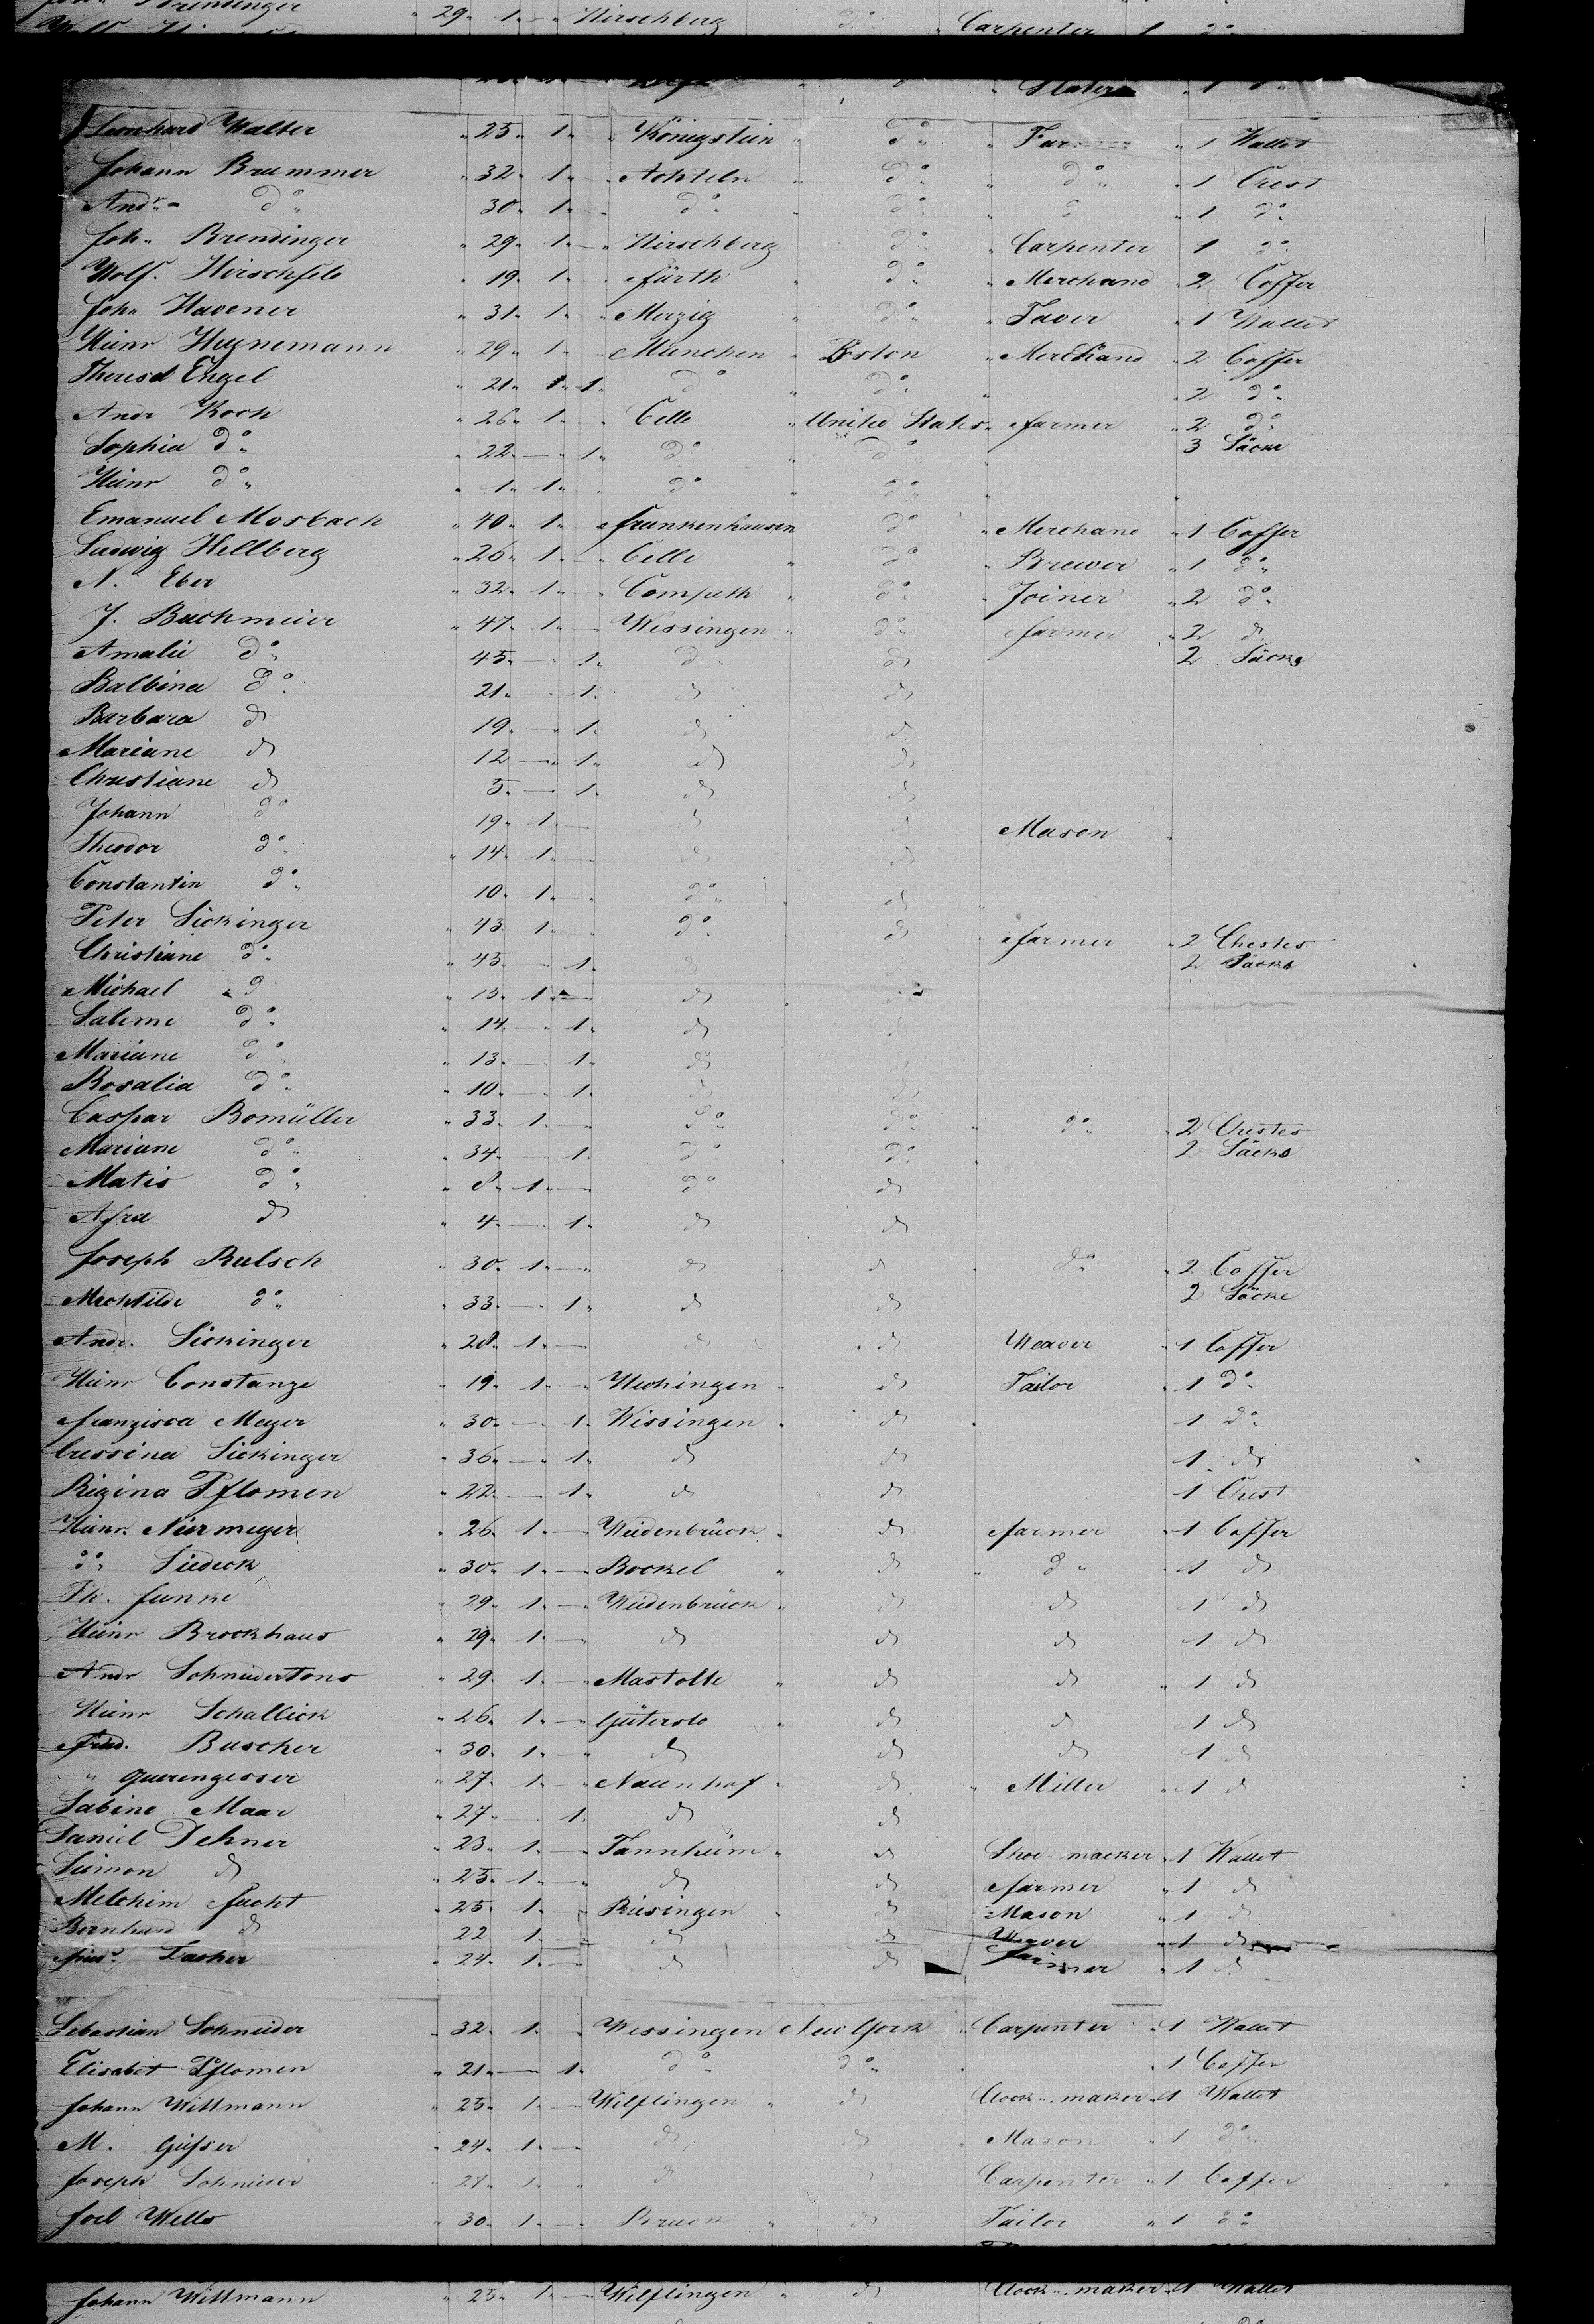 29 1 Hirschberg do Carpenter 1 do
Slater 1
Leonhard Walter 25 1 Königstein do Farmer 1 Wallet
Johann Brummer 32 1 Achteln do do 1 Chest
Andr. do 30 1 do do d 1 do
Joh. Brendinger 29 1 Hirschberg do Carpenter 1 do
Wolf. Hirschfeld 19 1 Fürth do Merchand 2 Coffer
Joh. Havener 31 1 Merzig do Taver 1 Wallet
Heinr Heynemann 29 1 München Boston Merchand 2 Coffer
Theresa Engel 21 1 do do 2 do
Andr Koch 26 1 Celle United States farmer 2 do
Sophia do 22 1 do do 3 Säcke
Heinr do 1 1 do do
Emanuel Mosbach 40 1 Frankenhausen do Merchand 1 Coffer
Ludwig Hellberg 26 1 Celle do Brewer 1 do
N. Eber 32 1 Competh do Joiner 2 do
J. Buchmeier 47 1 Wessingen do farmer 2 do
Amalie do 45 1 do do 2 Säcke
Balbina do 21 1 do do
Barbara do 19 1 do do
Mariane do 12 1 do do
Christiane do 5 1 do do
Johann do 19 1 do do Mason
Theodor do 14 1 do do
Constantin do 10 1 do do
Peter Sickinger 43 1 do do farmer 2 Chestes
Christiane do 45 1 do do 2 Säcke
Michael do 13 1 do do
Saleme do 14 1 do do
Mariane do 13 1 do
Rosalia do 10 1 do do
Caspar Bomüller 33 1 do do do 2 Chestes
Mariane do 34 1 do do 2 Säcke
Matis do 8 1 do do
Afra do 4 1 do do
Joseph Rulsch 30 1 do do do 2 Coffer
Mechtilde do 33 1 do do 2 Säcke
Andr. Sickinger 28 1 do do Weaver 1 Coffer
Heinr Constanze 19 1 Hechingen do Tailor 1 do
Franzisca Meyer 30 1 Wissingen do 1 do
Cressina Sickinger 36 1 do do 1 do
Regina Pflomen 22 1 do do 1 Chest
Heinr. Niermeyer 26 1 Wiedenbrück do farmer 1 Coffer
do Siedeck 30 1 Bockel do do 1 do
Th. Funke 29 1 Wiedenbrück do do 1 do
Heinr Brockhaus 29 1 do do do 1 do
Andr Schneidertons 29 1 Mastolte do do 1 do
Heinr Schallick 26 1 Gütersloh do do 1 do
Fried. Buscher 30 1 do do do 1 do
" Querengesser 27 1 Naunhof do Miller 1 do
Sabine Maar 27 1 do do
Daniel Dehner 23 1 Tannheim do Shoe-macker 1 Wallet
Siimon do 25 1 do do farmer 1 do
Melchim Fucht 25 1 Riesingen do Mason 1 do
Bernhard do 22 1 do do Weaver 1 do
Fried. Lacher 24 1 do do farmer 1 do
Sebastian Schneider 32 1 Wessingen New York Carpenter 1 Wallet
Elisabet Pflomen 21 1 do do 1 Coffer
Johann Wittmann 25 1 Wilflingen do Clock-maker 1 Wallet
M. Gässer 24 1 do do Mason 1 do
Joseph Schneider 27 1 do do Carpenter 1 Coffer
Joel Wells 30 1 Bruck do Tailor 1 do
Johann Wittmann 25 1 Wilflingen do Clock-maker 1 Wallet